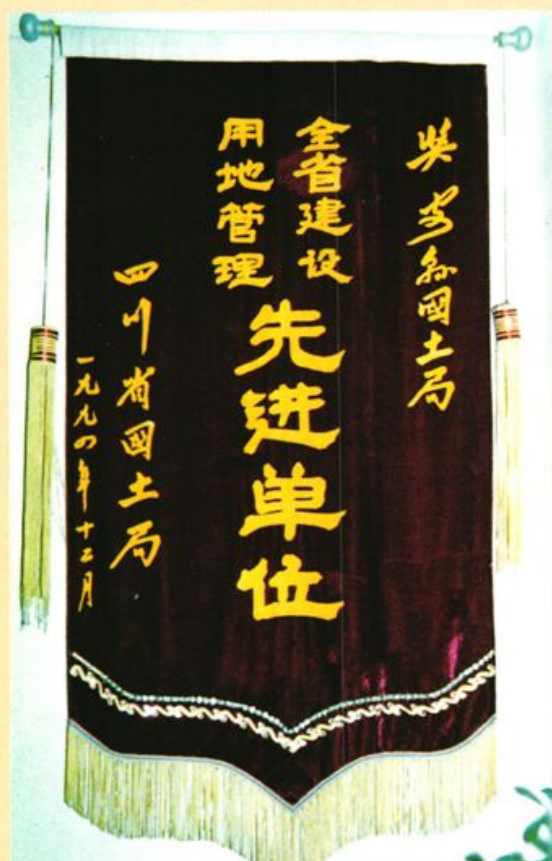 奖安縣國土局
全省建设
用地管理
先进单位
四川省國土局
一九九四年十二月